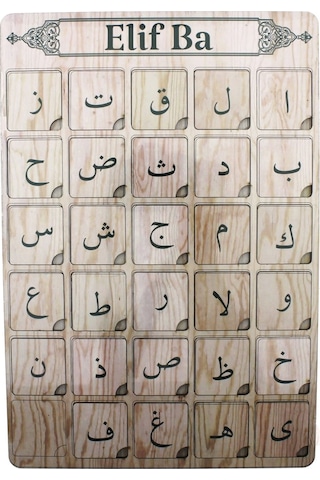 Elif Ba
ا ل ق ت ز
ب د ث ض ح
ك م ج ش س
و لا ر ط ع
خ ظ ص ذ ن
ى هـ غ ف